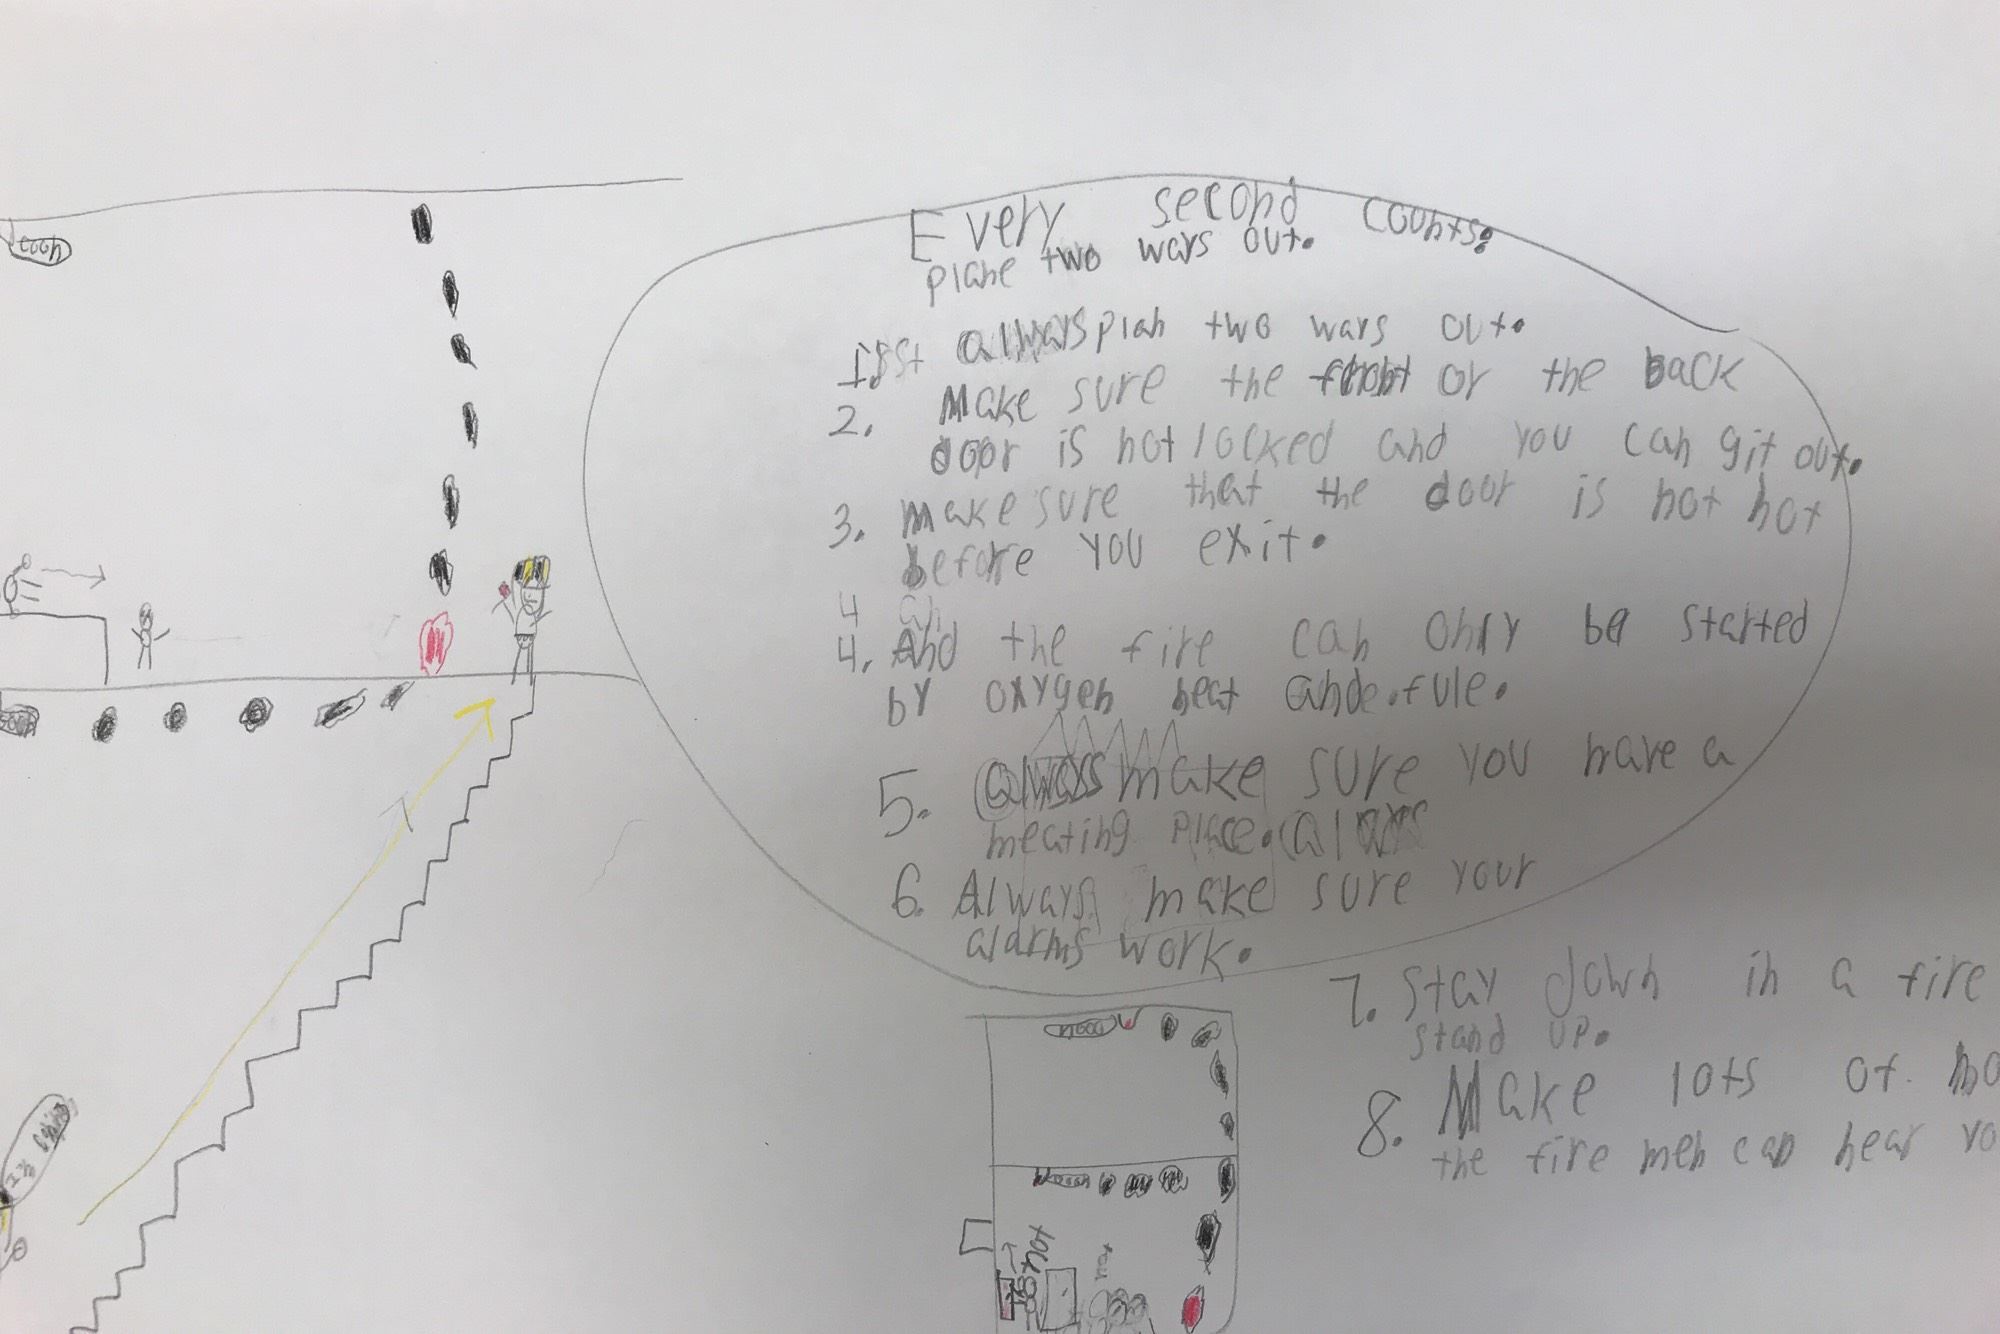 Every second counts.
plane two ways out.
1st always plan two ways out.
2. Make sure the front or the back
door is not locked and you can git out.
3. make sure that the door is not hot
before you exit.
4 an
4. And the fire can only be started
by oxygen heat ande.fule.
5. always make sure you have a
meating place. always
6. Always make sure your
alarms work.
7. Stay down in a fire
stand up.
8. Make lots of
the fire men can hear
hot